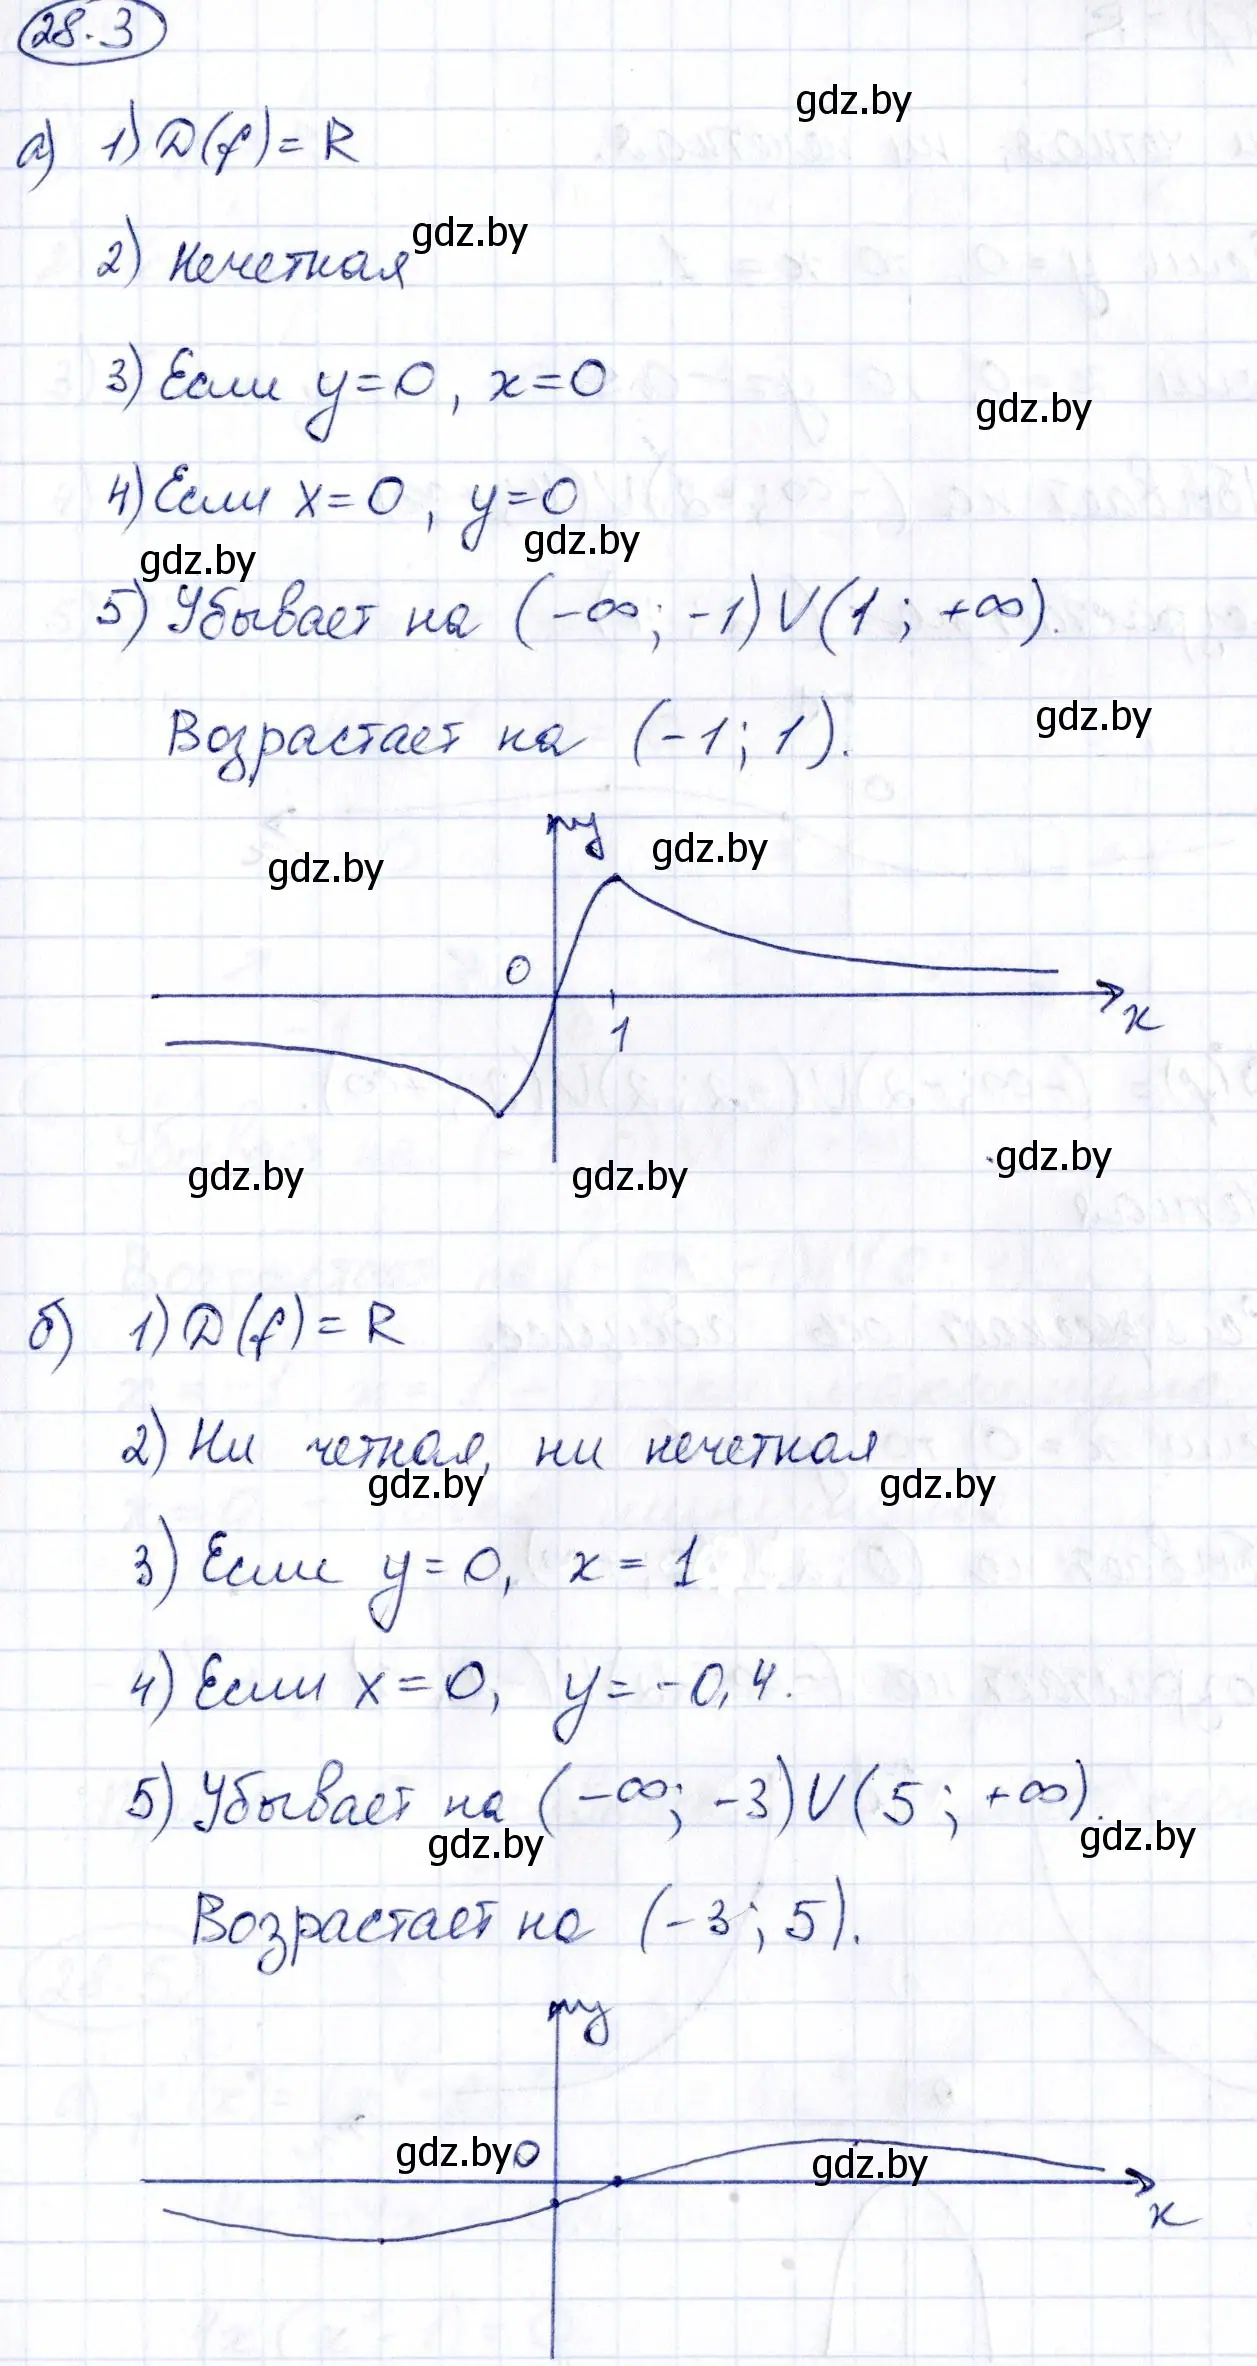 28.3
gdz.by
а) 1) D(f) = R
gdz.by
2) Нечетная
3) Если y=0, x=0
gdz.by
4) Если x=0, y=0
gdz.by gdz.by
5) Убывает на (-∞; -1) V (1; +∞).
Возрастает на (-1; 1).
gdz.by
y
gdz.by gdz.by
0
1 x
gdz.by gdz.by gdz.by
б) 1) D(f) = R
2) Ни четная, ни нечеткая
gdz.by gdz.by
3) Если y=0, x=1
4) Если x=0, y=-0,4.
5) Убывает на (-∞; -3) V (5; +∞).
gdz.by gdz.by
Возрастает на (-3; 5).
y
gdz.by 0 gdz.by
x